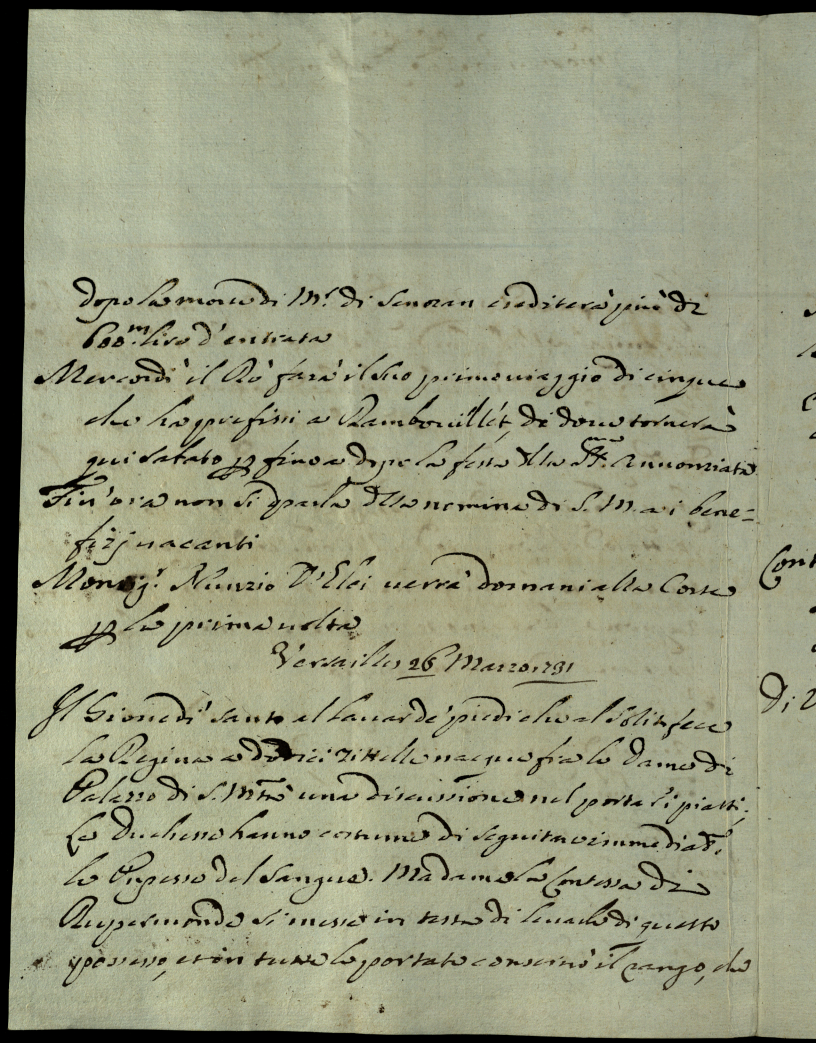 dopo la morte di M.r di Senozan erediterà più di
600.m lire d'entrata
Mercordì il Rè farà il suo primo viaggio di cinque
che ha prefissi a Rambouillét, di dove tornerà
qui sabato p fino a dopo la festa della SS.ma Annonziata
Fin'ora non si parla della nomina di S. M. a i bene=
fizj vacanti
Monsig.r Nunzio D'Elci verrà domani alla Corte
p la prima volta
Versailles 26 Marzo 1731
Il Giovedì santo al lavar de' piedi che al solito fece
la Regina a dodici zittelle nacque fra le Dame di
Palazzo di S. M.tà una discussione nel portar i piatti;
Le Duchesse hanno costume di seguitare immediat.e
le Pnpesse del sangue. Madama la Contessa di
Rupermonde si messe in testa di levarle di questo
possesso, et in tutte le portate conservò il rango, che
Cont
Di V